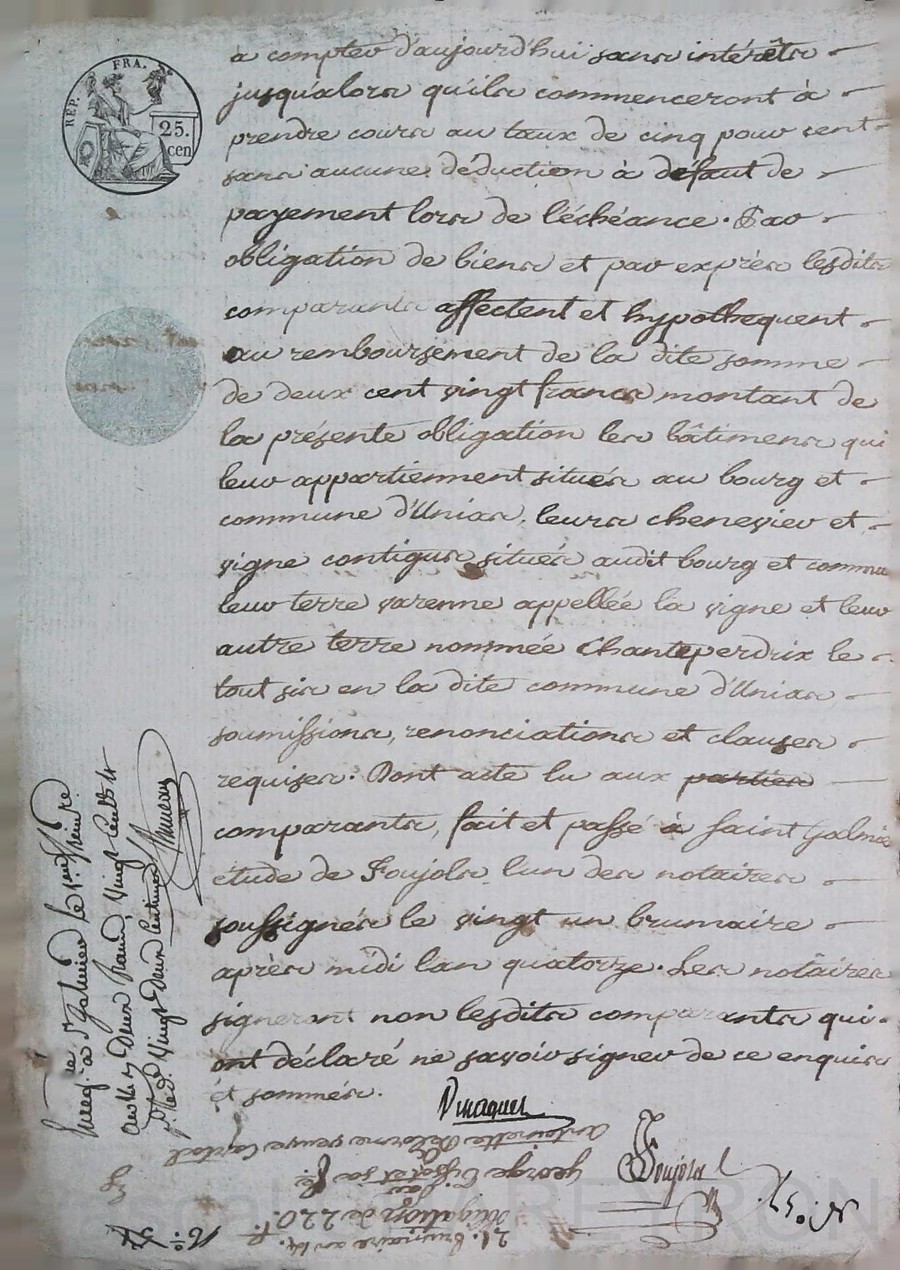 REP. FRA.
25.
cen
a compter d'aujourd'hui sans intérêts
jusqu'alors qu'ils commenceront à
prendre cours au taux de cinq pour cent
sans aucune déduction à défaut de
payement lors de l'échéance. Par
obligation de biens et par exprès lesdits
comparants affectent et hypothequent
au remboursement de la dite somme
de deux cent vingt francs montant de
la présente obligation les bâtimens qui
leur appartiennent situés au bourg et
commune d'Unias, leurs chenevier et
vigne contigus situés audit bourg et commune
leur terre varenne appellée la vigne et leur
autre terre nommée Chanteperdrix le
tout sis en la dite commune d'Unias
soumissions, renonciations et clauses
requises. Dont acte lu aux parties
comparants, fait et passé à Saint Galmier
étude de Foujols lun des notaires
soussignés le vingt un brumaire
après midi lan quatorze. Les notaires
signeront non lesdits comparants qui
ont déclaré ne savoir signer de ce enquis
et sommés.
Foujols
Enreg. à St Galmier le
deux francs vingt
vingt deux centimes
antoinette Delorme veuve
george et sa
par
obligation de 220 f.
21. brumaire an 14.